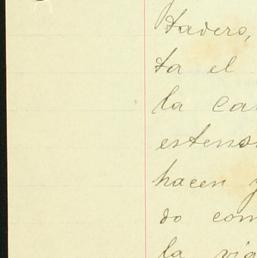 tadero,
ta el
la ca
estens
hacen
do com
la via